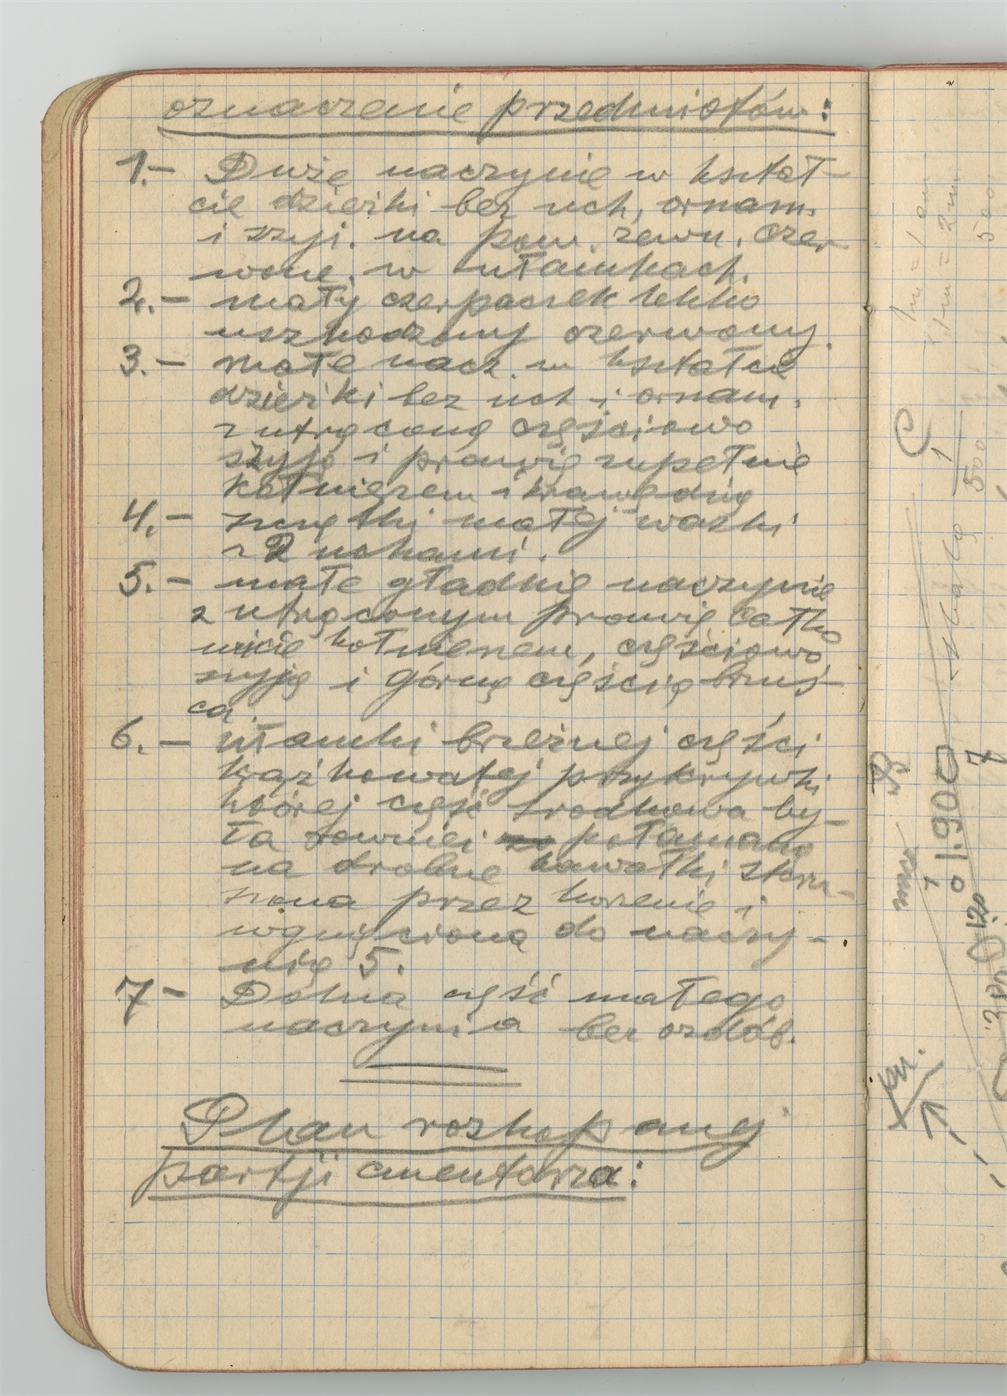 oznaczenie przedmiotów:
1.- Duże naczynie w kształ-
cie dzieżki bez uch, ornam.
i szyi. na pow. zewn. czer-
wone. w ułamkach.
2.- mały czerpaczek lekko
uszkodzony czerwony.
3.- małe nacz. w kształcie
dzieżki bez uch i ornam.
z utrąconą częściowo
szyją i prawię zupełnie
kołnierzem i krawędzią
4.- szczątki małej wazki
z 2 uchami.
5.- małe gładkie naczynie
z utrąconym prawie całko
wicie kołnierzem, częściowo
szyją i górną częścią brzuś-
ca.
6.- ułamki brzeżnej części
krążkowatej przykrywki
której część środkowa by-
ła również połamana
na drobne kawałki
przez korzenie i
wgnieciona do naczy-
nia 5.
7- Dolna część małego
naczynia bez ozdób.
Plan rozkopanej
partji cmentarza:
1
500
1.900
7